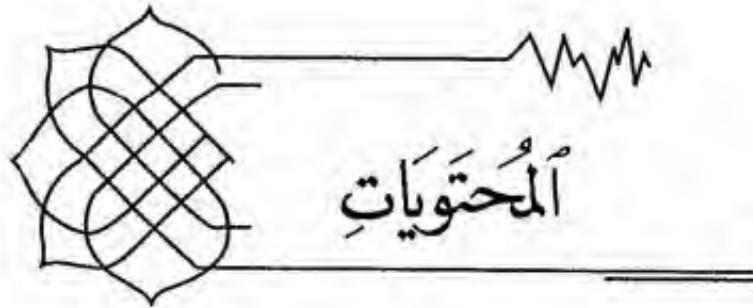 ٱلْمُحَتَوَيَاتِ